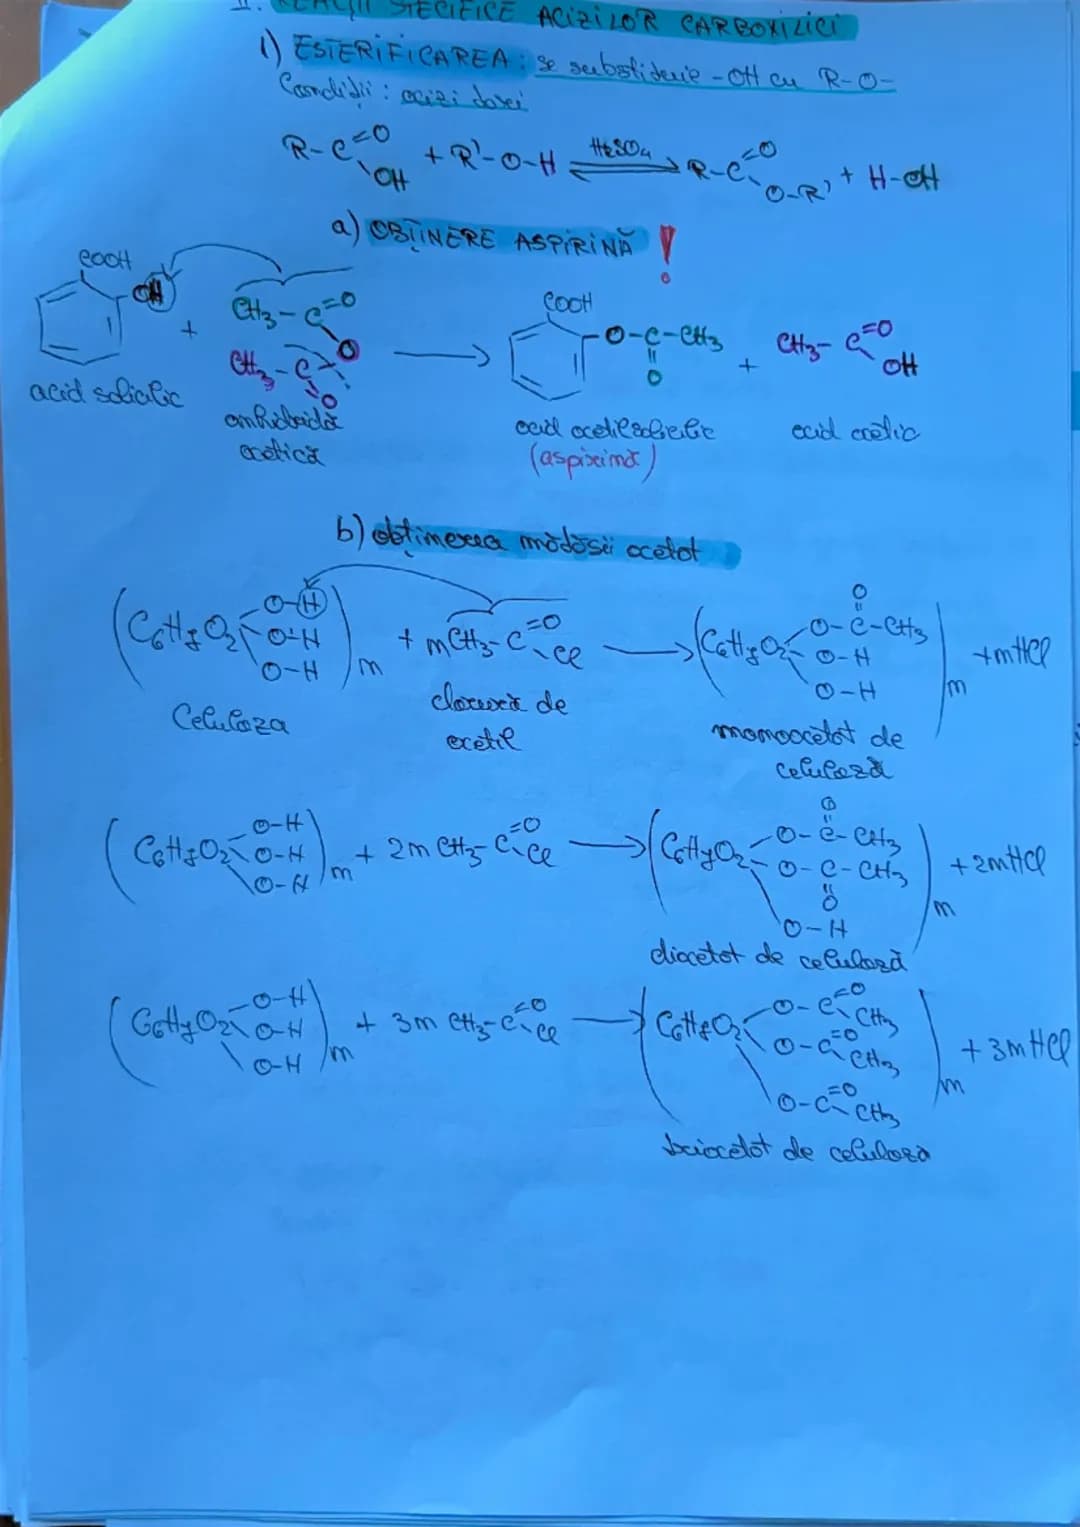 II. REACȚII SPECIFICE ACIZILOR CARBOXILICI
1) ESTERIFICAREA: se substituie -OH cu R-O-
Condiții: acizi tari
R-C=O OH + R'-O-H ⇌ H2SO4 R-C=O O-R' + H-OH
a) OBȚINERE ASPIRINĂ !
COOH OH + CH3-C=O O CH3-C=O → COOH O-C-CH3 =O + CH3-C=O OH
acid salicilic
anhidridă acetică
acid acetilsalicilic
(aspirină)
acid acetic
b) obținerea mătăsii acetat
(C6H7O2 O-H O-H O-H)n + nCH3-C=O Cl → (C6H7O2 O-C-CH3 =O O-H O-H)n + nHCl
Celuloza
clorură de acetil
monoacetat de celuloză
(C6H7O2 O-H O-H O-H)n + 2n CH3-C=O Cl → (C6H7O2 O-C-CH3 =O O-C-CH3 =O O-H)n + 2nHCl
diacetat de celuloză
(C6H7O2 O-H O-H O-H)n + 3n CH3-C=O Cl → (C6H7O2 O-C=O CH3 O-C=O CH3 O-C=O CH3)n + 3nHCl
triacetat de celuloză